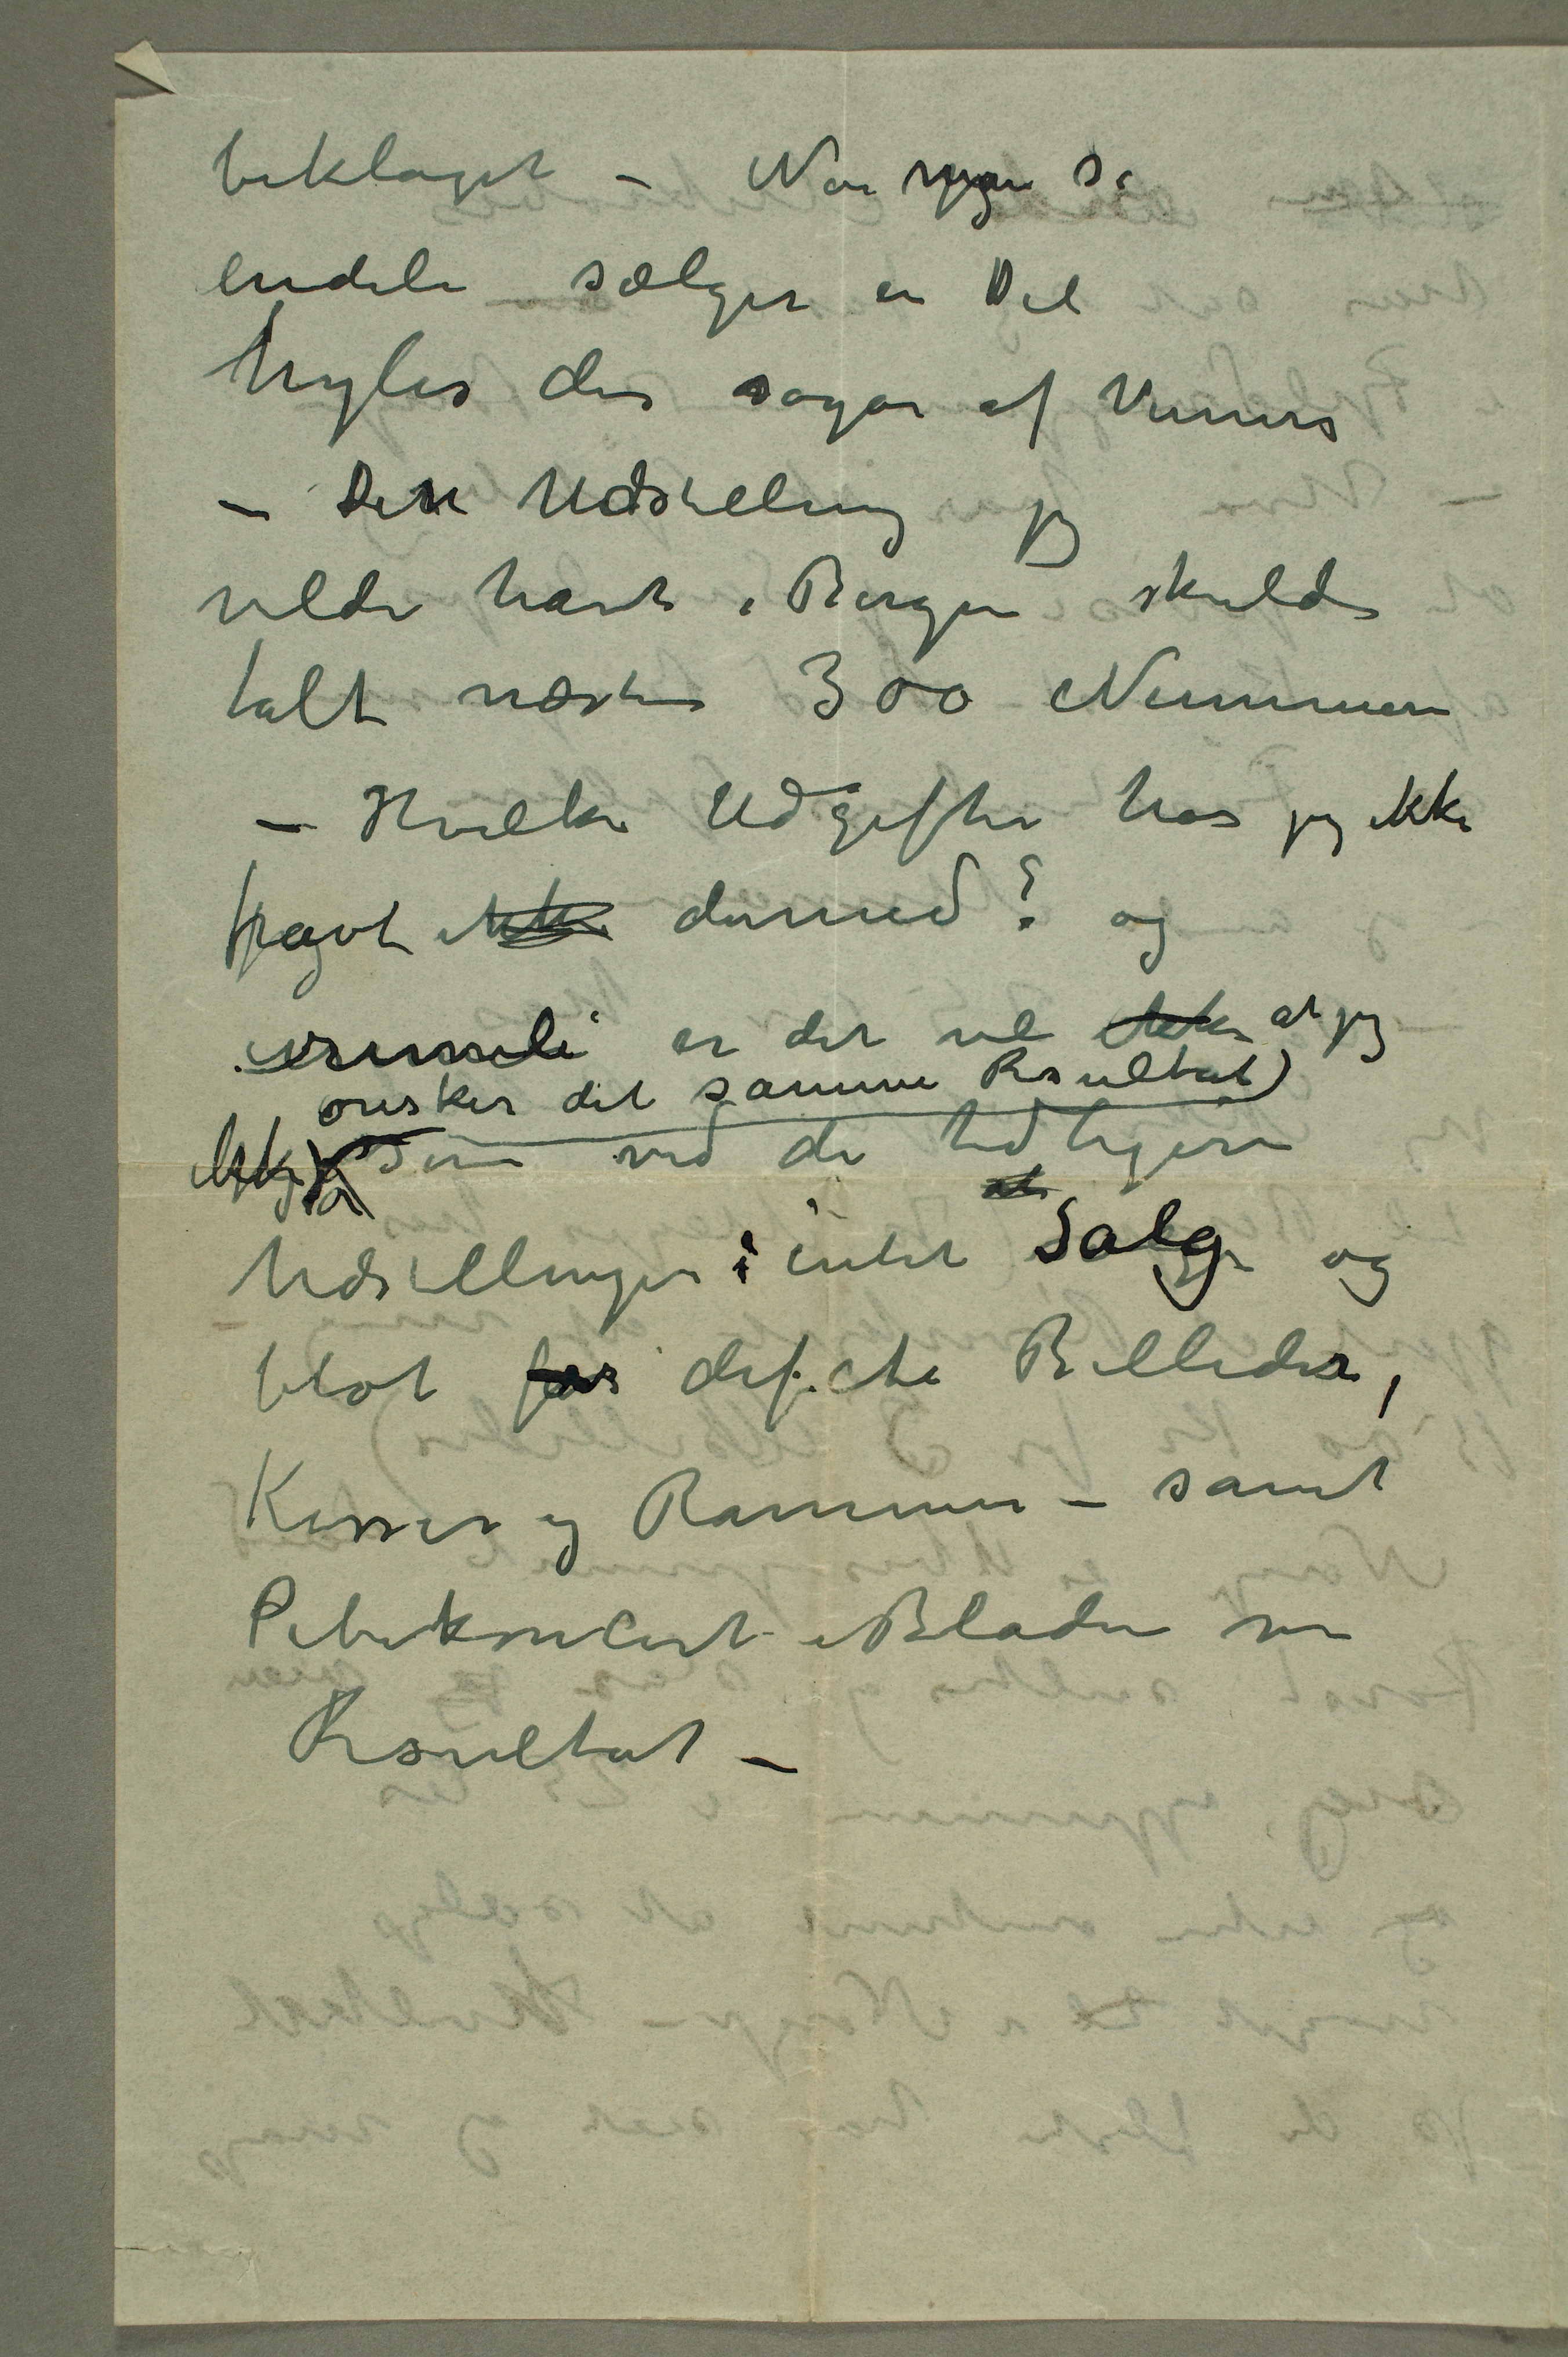 beklaget – Når så
endeli sælger en Del
hyles der sogar af Venners
– Den Udstilling jeg
vilde havt i Bergen skulde
talt næsten 300 Nummere
– Hvilke Udgifter har jeg ikke
havt ikke dermed? og
urimeli er det vel ikke at jeg
ønsker det samme Resultat)
ikke som ved de tidligere
at
Udstillinger: intet Salg og
blot for defecte Billeder,
Kasser og Rammer – samt
Pibekoncert i Bladene som
Resultat –